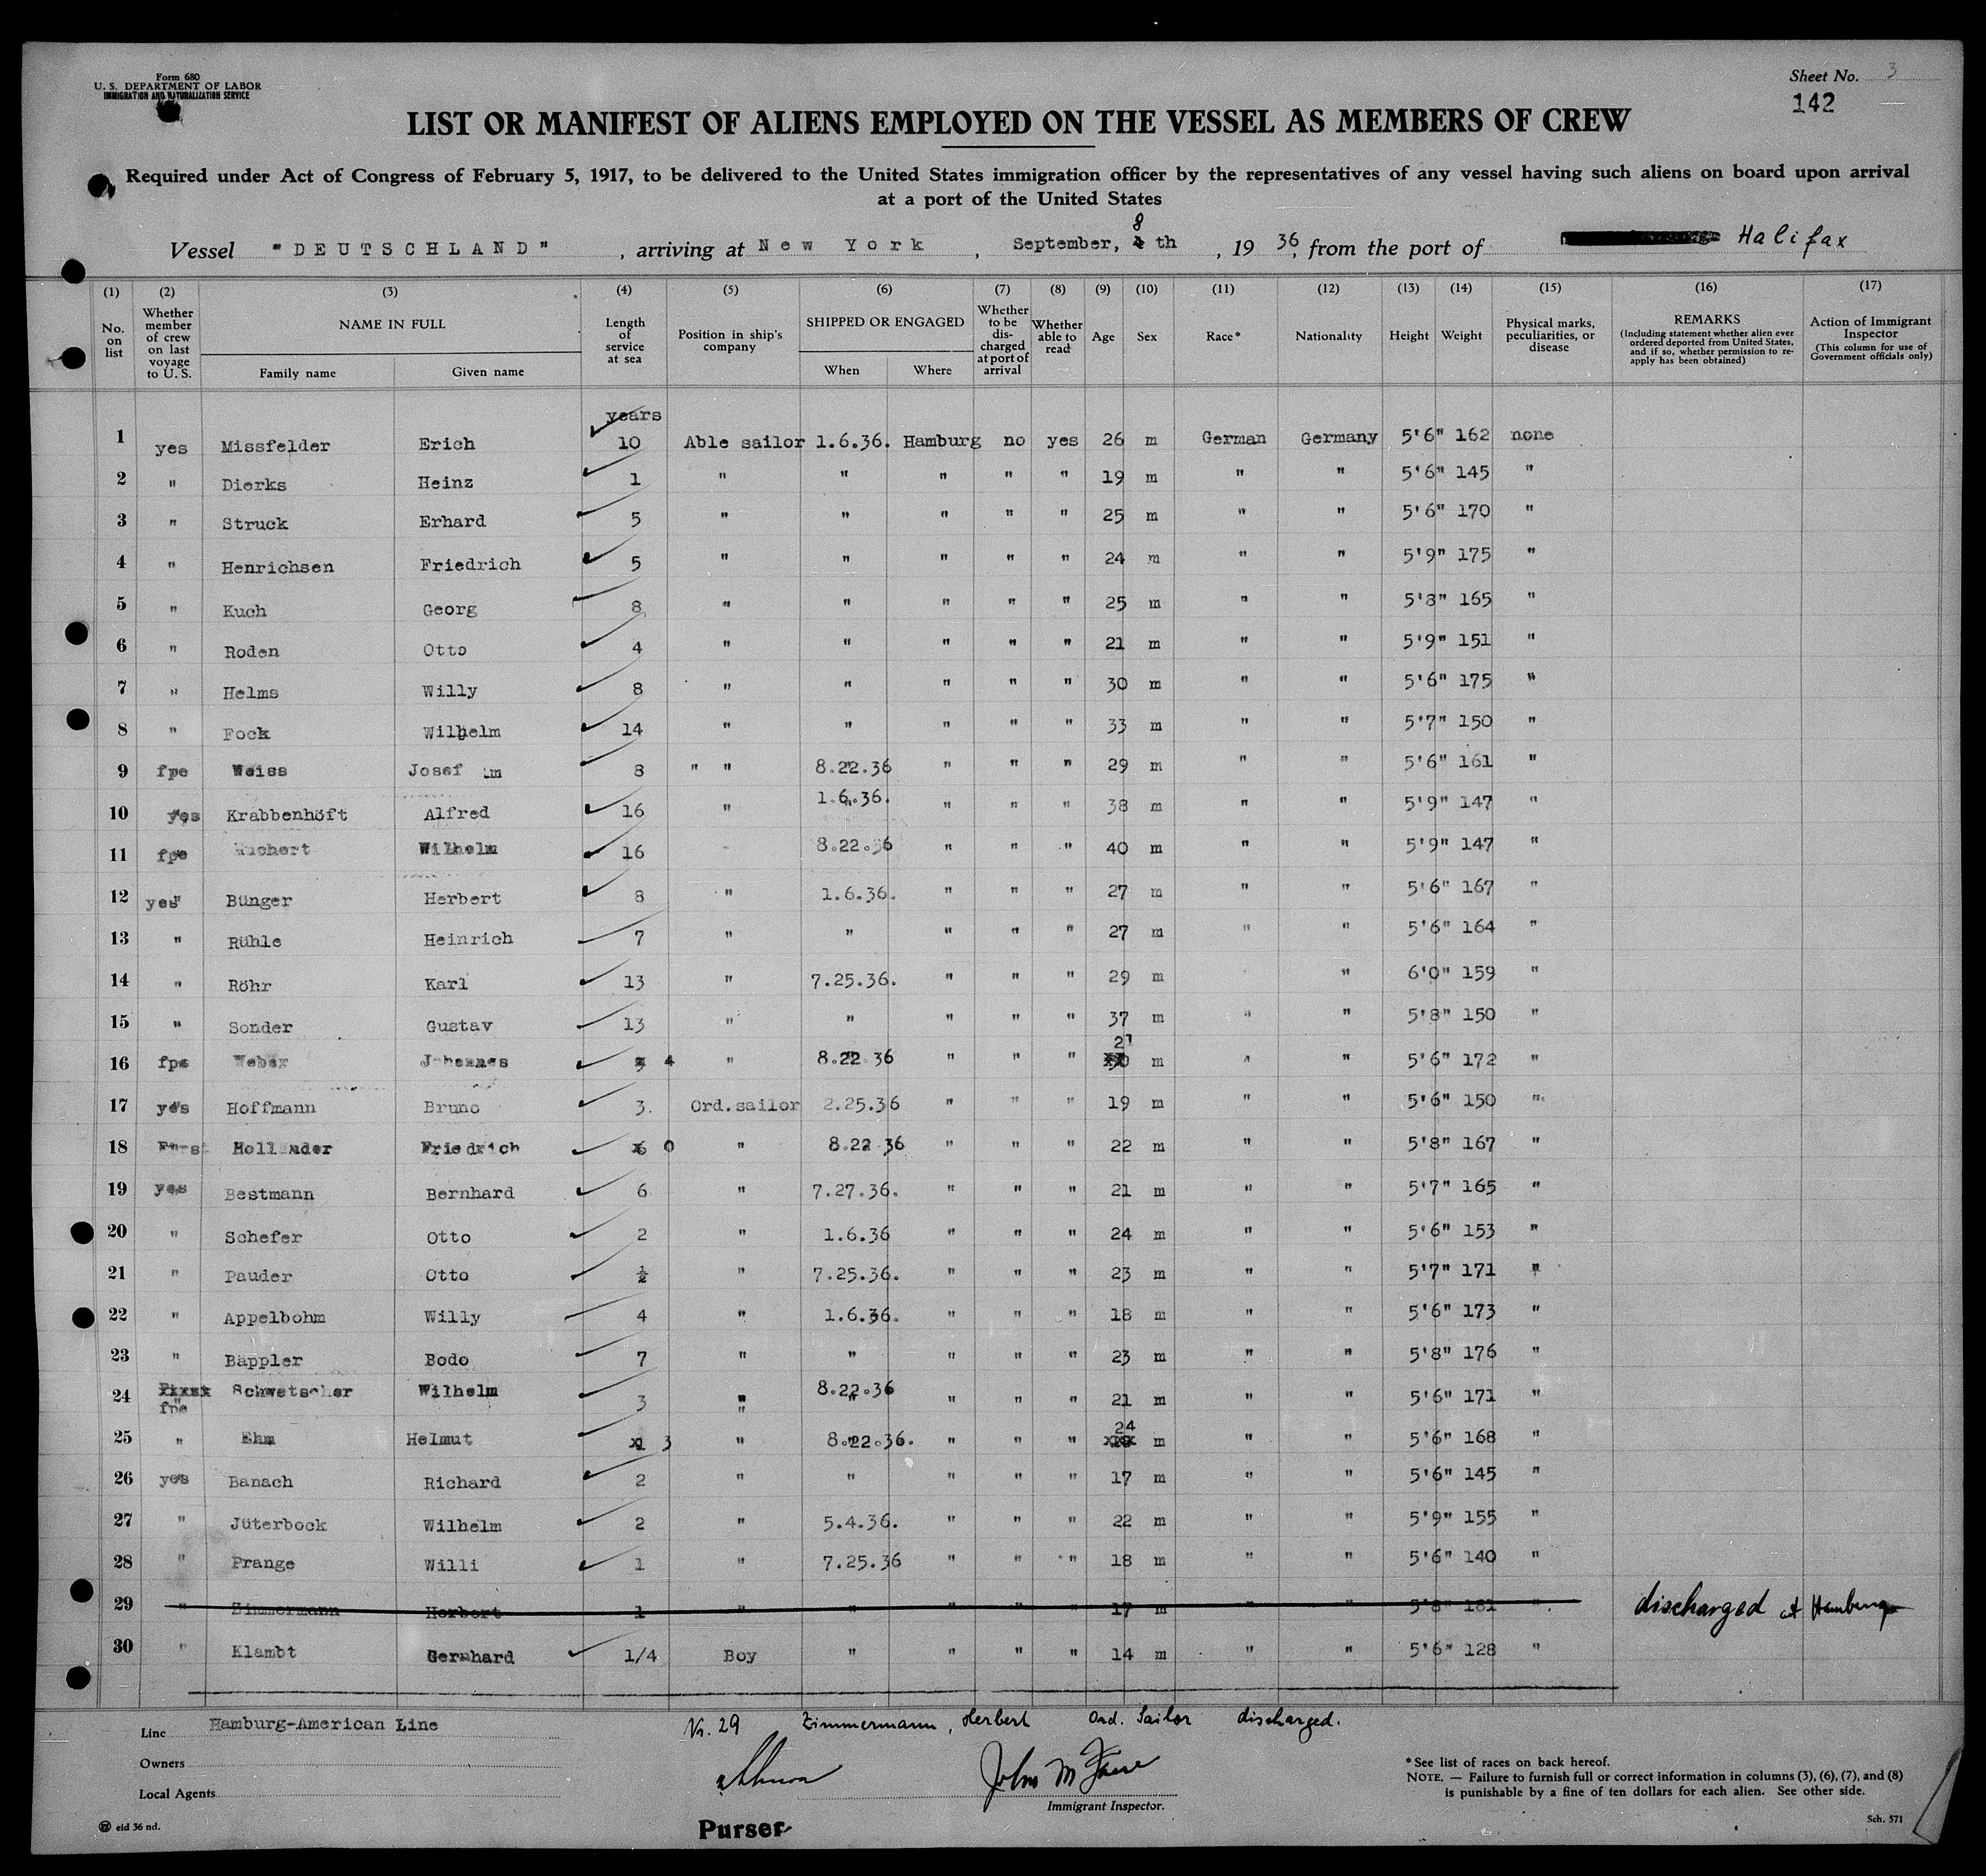 Form 680
U. S. DEPARTMENT OF LABOR
IMMIGRATION AND NATURALIZATION SERVICE
Sheet No. 3
142
LIST OR MANIFEST OF ALIENS EMPLOYED ON THE VESSEL AS MEMBERS OF CREW
Required under Act of Congress of February 5, 1917, to be delivered to the United States immigration officer by the representatives of any vessel having such aliens on board upon arrival
at a port of the United States
Vessel "DEUTSCHLAND", arriving at New York, September, 8 th, 1936, from the port of Halifax
(1) (2) (3) (4) (5) (6) (7) (8) (9) (10) (11) (12) (13) (14) (15) (16) (17)
No. on list
Whether member of crew on last voyage to U. S.
NAME IN FULL
Family name Given name
Length of service at sea
Position in ship's company
SHIPPED OR ENGAGED
When Where
Whether to be discharged at port of arrival
Whether able to read
Age Sex Race* Nationality Height Weight
Physical marks, peculiarities, or disease
REMARKS
(Including statement whether alien ever ordered deported from United States, and if so, whether permission to reapply has been obtained)
Action of Immigrant Inspector
(This column for use of Government officials only)
years
1 yes Missfelder Erich 10 Able sailor 1.6.36. Hamburg no yes 26 m German Germany 5'6" 162 none
2 " Dierks Heinz 1 " " " " " 19 m " " 5'6" 145 "
3 " Struck Erhard 5 " " " " " 25 m " " 5'6" 170 "
4 " Henrichsen Friedrich 5 " " " " " 24 m " " 5'9" 175 "
5 " Kuch Georg 8 " " " " " 25 m " " 5'8" 165 "
6 " Roden Otto 4 " " " " " 21 m " " 5'9" 151 "
7 " Helms Willy 8 " " " " " 30 m " " 5'6" 175 "
8 " Fock Wilhelm 14 " " " " " 33 m " " 5'7" 150 "
9 fpe Weiss Josef 8 " " 8.22.36 " " " 29 m " " 5'6" 161 "
10 yes Krabbenhöft Alfred 16 " 1.6.36. " " " 38 m " " 5'9" 147 "
11 fpe Wilhelm 16 8.22.36 " " " 40 m " " 5'9" 147 "
12 yes Bünger Herbert 8 " 1.6.36. " " " 27 m " " 5'6" 167 "
13 " Rühle Heinrich 7 " " " " " 27 m " " 5'6" 164 "
14 " Röhr Karl 13 " 7.25.36. " " " 29 m " 6'0" 159 "
15 " Sonder Gustav 13 " " " " " 37 m " " 5'8" 150 "
16 fpe Weber Johannes 4 " 8.22 36 " " " m " " 5'6" 172 "
17 yes Hoffmann Bruno 3. Ord.sailor 2.25.36 " " " 19 m " " 5'6" 150 "
18 First Hollander Friedrich 0 " 8.22 36 " " " 22 m " " 5'8" 167 "
19 yes Bestmann Bernhard 6 " 7.27.36. " " " 21 m " " 5'7" 165 "
20 " Schefer Otto 2 " 1.6.36 " " " 24 m " " 5'6" 153 "
21 " Pauder Otto ½ " 7.25.36. " " " 23 m " " 5'7" 171 "
22 " Appelbohm Willy 4 " 1.6.36. " " " 18 m " " 5'6" 173 "
23 " Bäppler Bodo 7 " " " " " 23 m " " 5'8" 176 "
24 fpe Wilhelm 3 " 8.22.36 " " " 21 m " " 5'6" 171 "
25 " Ehm Helmut 3 " 8.22.36. " " " 24 m " " 5'6" 168 "
26 yes Banach Richard 2 " " " " " 17 m " " 5'6" 145 "
27 " Jüterbock Wilhelm 2 " 5.4.36. " " " 22 m " " 5'9" 155 "
28 " Prange Willi 1 " 7.25.36 " " " 18 m " " 5'6" 140 "
29 " Zimmermann Herbert 1 " " " " " 17 m " " 5'8" 181 " discharged at Hamburg
30 " Klambt Gernhard 1/4 Boy " " " " 14 m " " 5'6" 128 "
Line Hamburg-American Line
Nr. 29 Zimmermann, Herbert Ord. Sailor discharged.
Owners
Local Agents
Immigrant Inspector.
Purser
* See list of races on back hereof.
NOTE. — Failure to furnish full or correct information in columns (3), (6), (7), and (8)
is punishable by a fine of ten dollars for each alien. See other side.
eid 36 nd.
Sch. 571